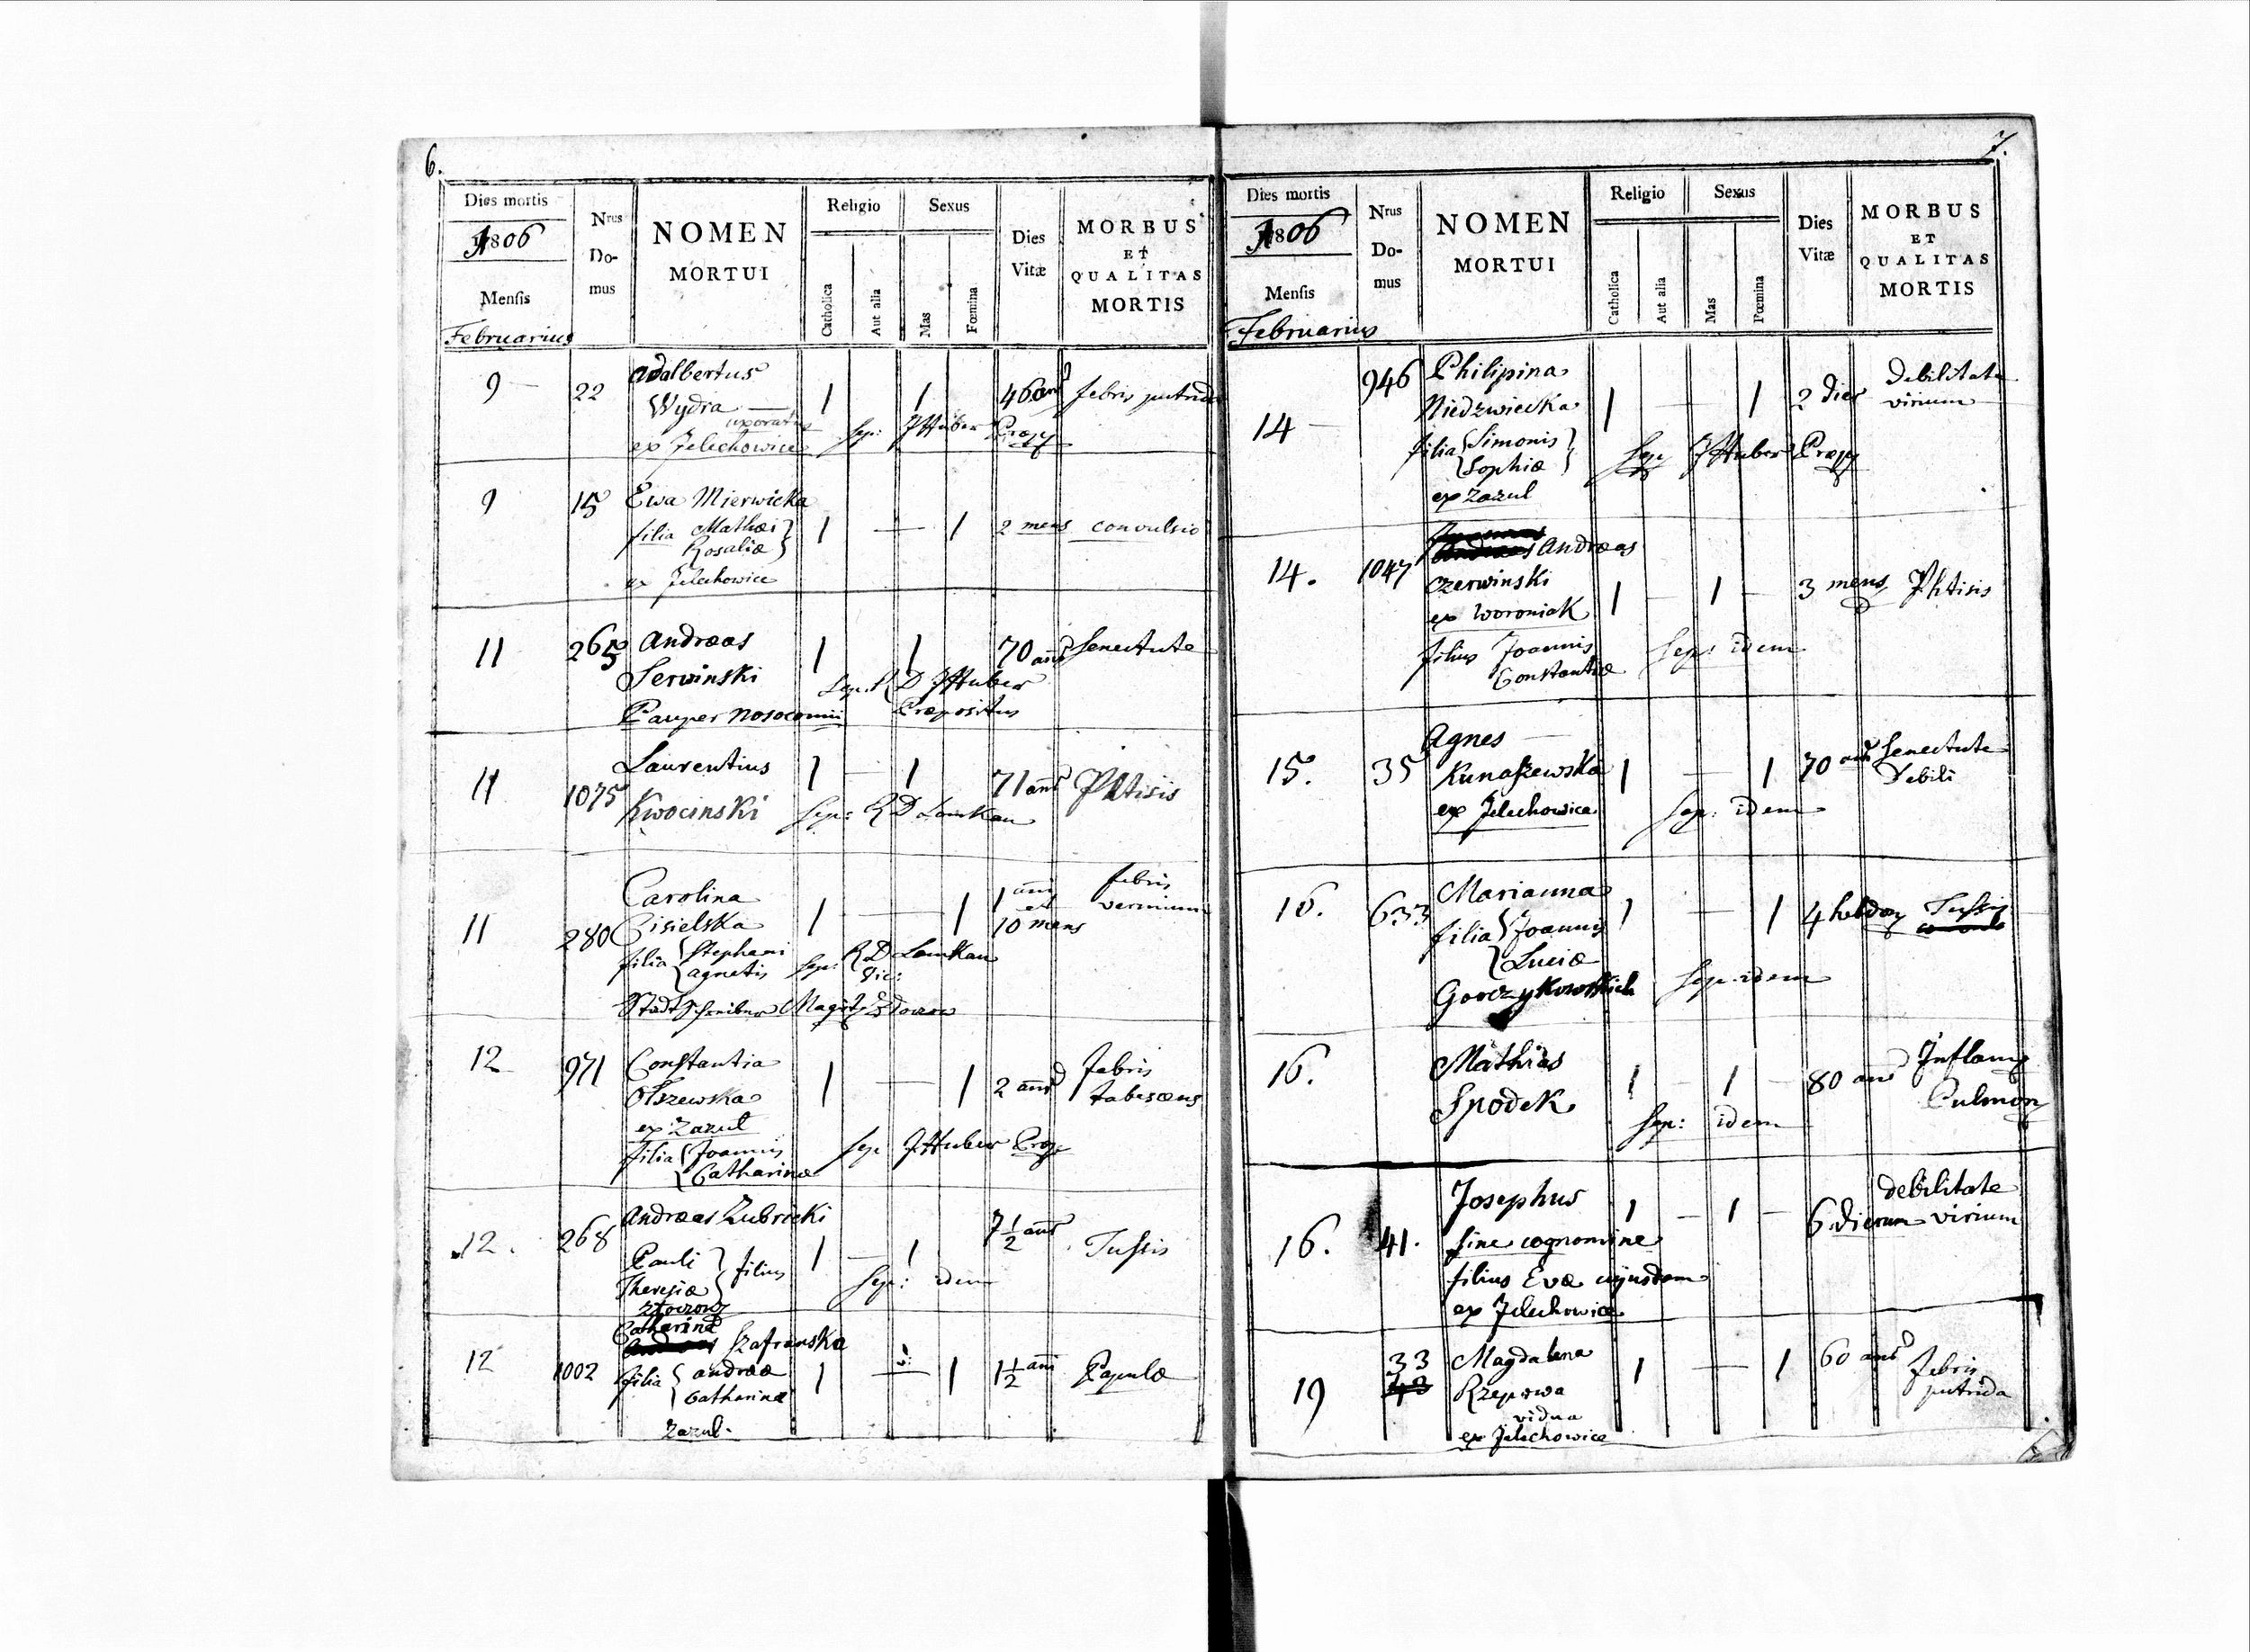 6.
Dies mortis
1806
Mensis
Februarius
Nrus
Do-
mus
NOMEN
MORTUI
Religio
Catholica
Aut alia
Sexus
Mas
Fœmina
Dies
Vitæ
MORBUS
ET
QUALITAS
MORTIS
9 22 Adalbertus
Wydra
uxoratus
ex Jelechowice
1 1 46 ann febris putrida
sep: J Huber Præp
9 15 Ewa Mierwicka
filia Mathæi
Rosaliæ
ex Jelechowice
1 — 1 2 mens convulsio
11 265 Andræas
Serwinski
Pauper nosocomii
1 1 70 ann senectute
Sep: R D J Huber
Præpositus
11 1075 Laurentius
Kwocinski
1 — 1 71 ann Phtisis
Sep: R D Lamkau
11 280 Carolina
Cisielska
filia Stephani
agnetis
1 — 1 1 anni
et
10 mens
febris
verminum
Sep: R D Lamkau
Stadtschreiber
12 971 Constantia
Olszewska
ex Zazul
filia Joannis
Catharinæ
1 — 1 2 ann febris
tabescens
sep J Huber Præp
12. 268 Andræas Zubricki
Pauli
Theresiæ
filius
1 — 1 7 1/2 ann Tussis
Sep: idem
12 1002 Catharina
Szafranska
filia andræa
Catharinæ
Zazul.
1 — 1 1 1/2 ani Papulæ
7.
Dies mortis
1806
Mensis
Februarius
Nrus
Do-
mus
NOMEN
MORTUI
Religio
Catholica
Aut alia
Sexus
Mas
Fœmina
Dies
Vitæ
MORBUS
ET
QUALITAS
MORTIS
14 946 Philipina
Niedzwiecka
filia Simonis
Sophiæ
ex Zazul
1 — 1 2 dies Debilitate
virium
Sep J Huber Præp
14. 1047 Andræas
Czerwinski
ex Woroniak
filius Joannis
Constantiæ
1 — 1 — 3 mens Phtisis
Sep: idem
15. 35 Agnes
Kunaszewska
ex Jelechowice
1 — 1 70 ann senectute
Debili
Sep: idem
16. 633 Marianna
filia Joannis
Luciæ
1 — 1 4 hebdom Tussis
Sep: idem
16. Mathias
Spodek
1 — 1 — 80 ann Inflam
Pulmon
Sep: idem
16. 41. Josephus
sine cognomine
filius Evæ cujusdam
ex Jelechowice
1 — 1 — 6 dierum debilitate
virium
19 33 Magdalena
Rzepowa
vidua
ex Jelechowice
1 — 1 60 ann febris
putrida